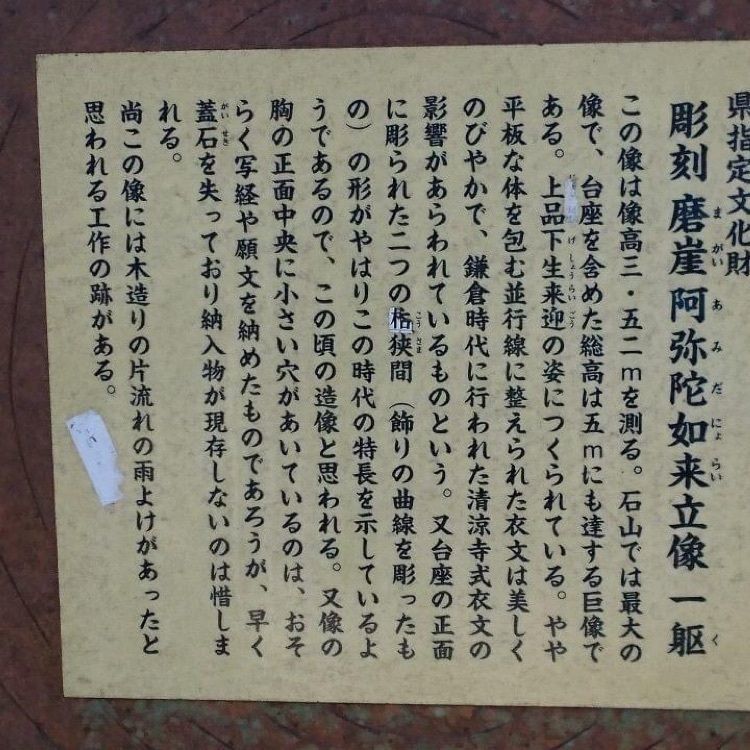 県指定文化財
彫刻 磨崖阿弥陀如来立像 一躯
この像は像高三・五二mを測る。石山では最大の
像で、台座を含めた総高は五mにも達する巨像で
ある。上品下生来迎の姿につくられている。やや
平板な体を包む並行線に整えられた衣文は美しく
のびやかで、鎌倉時代に行われた清涼寺式衣文の
影響があらわれているものという。又台座の正面
に彫られた二つの格狭間（飾りの曲線を彫ったも
の）の形がやはりこの時代の特長を示しているよ
うであるので、この頃の造像と思われる。又像の
胸の正面中央に小さい穴があいているのは、おそ
らく写経や願文を納めたものであろうが、早く
蓋石を失っており納入物が現存しないのは惜しま
れる。
尚この像には木造りの片流れの雨よけがあったと
思われる工作の跡がある。